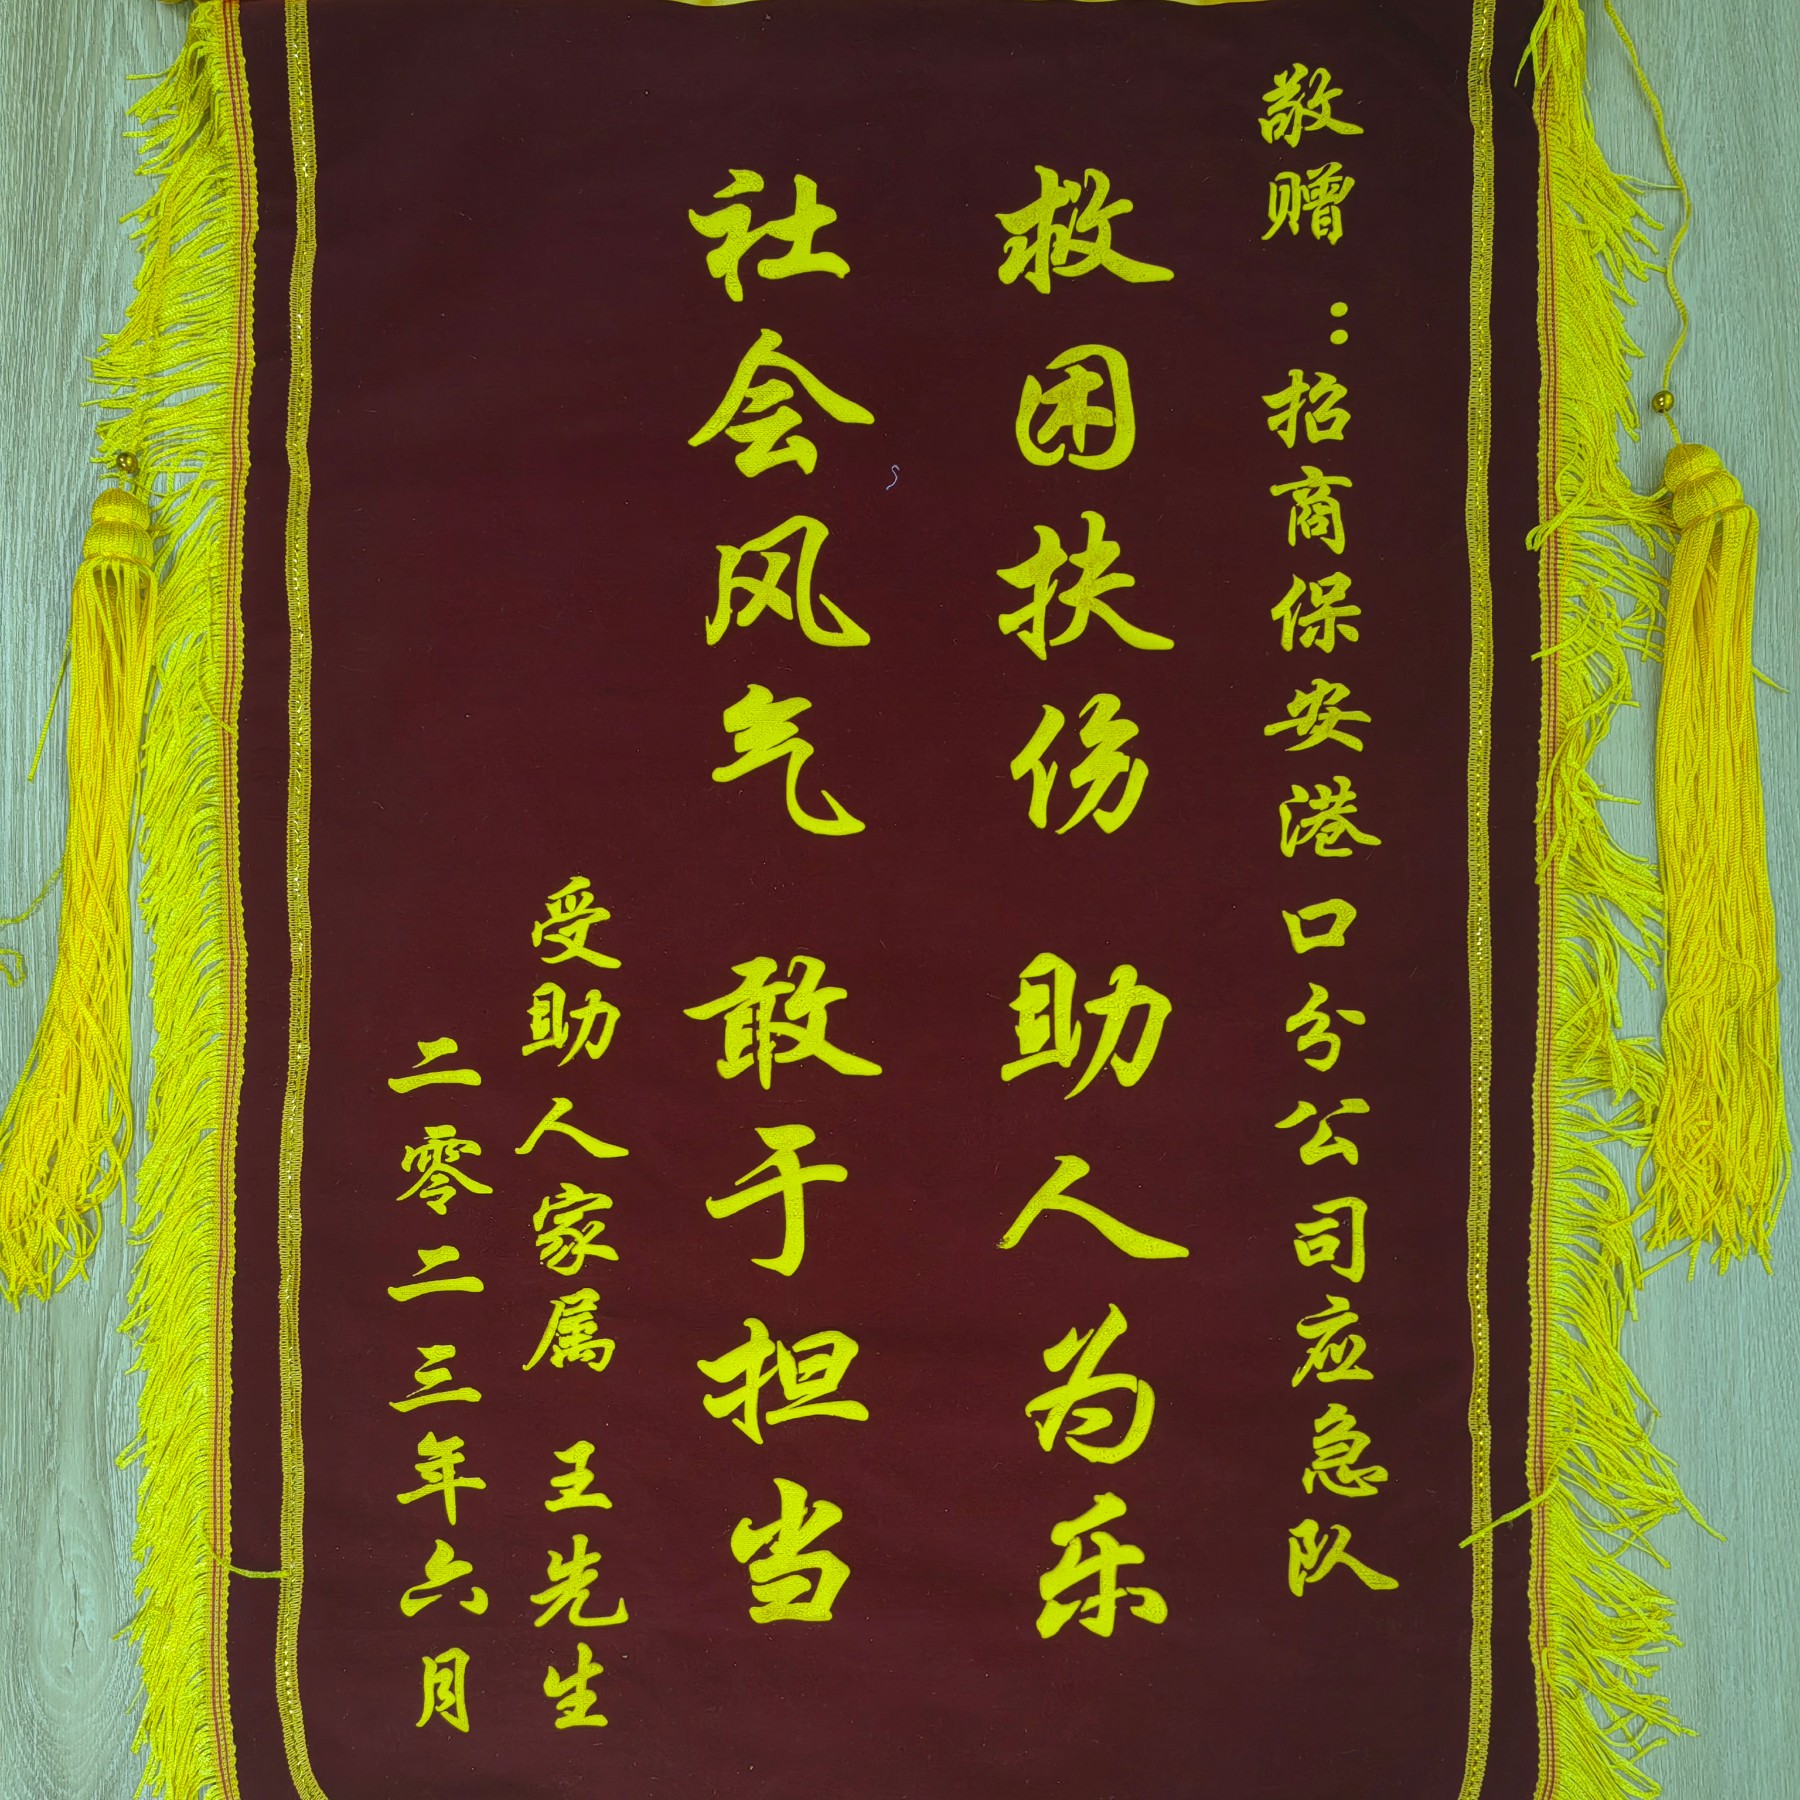 敬赠：招商保安港口分公司应急队
救困扶伤 助人为乐
社会风气 敢于担当
受助人家属 王先生
二零二三年六月